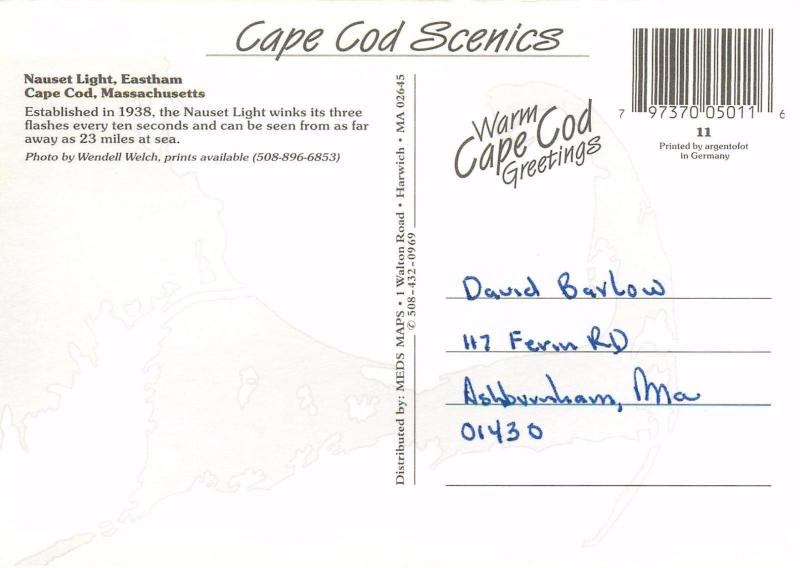 Cape Cod Scenics
Nauset Light, Eastham
Cape Cod, Massachusetts
Established in 1938, the Nauset Light winks its three
flashes every ten seconds and can be seen from as far
away as 23 miles at sea.
Photo by Wendell Welch, prints available (508-896-6853)
Distributed by: MEDS MAPS • 1 Walton Road • Harwich • MA 02645
✆ 508-432-0969
Warm
Cape Cod
Greetings
7 97370 05011 6
11
Printed by argentofot
in Germany
David Barlow
117 Fern RD
Ashburnham, Ma
01430